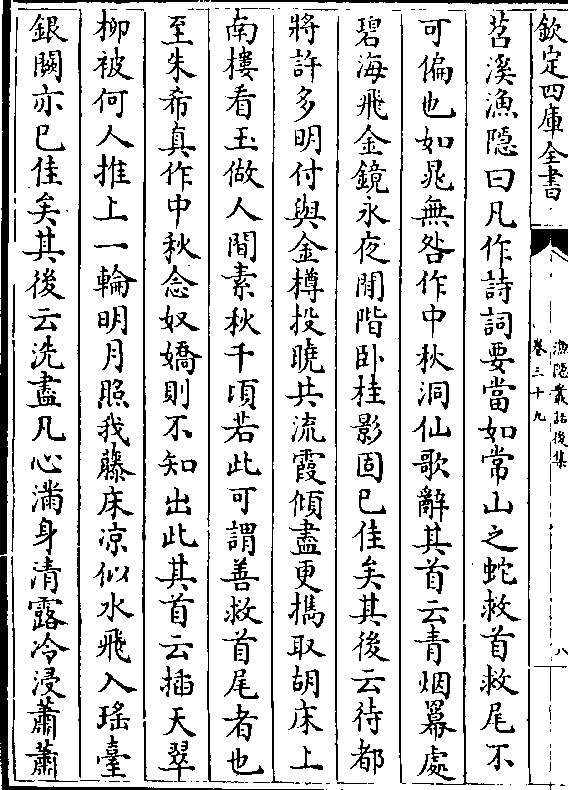 欽定四庫全書
漁隱叢話後集
卷三十九
八
苕溪漁隱曰凡作詩詞要當如常山之蛇救首救尾不
可偏也如晁無咎作中秋洞仙歌辭其首云青烟羃處
碧海飛金鏡永夜閒階卧桂影固已佳矣其後云待都
將許多明付與金樽投曉共流霞傾盡更擕取胡床上
南樓看玉做人間素秋千頃若此可謂善救首尾者也
至朱希真作中秋念奴嬌則不知出此其首云插天翠
柳被何人推上一輪明月照我藤床凉似水飛入瑤臺
銀闕亦已佳矣其後云洗盡凡心滿身清露冷浸蕭蕭